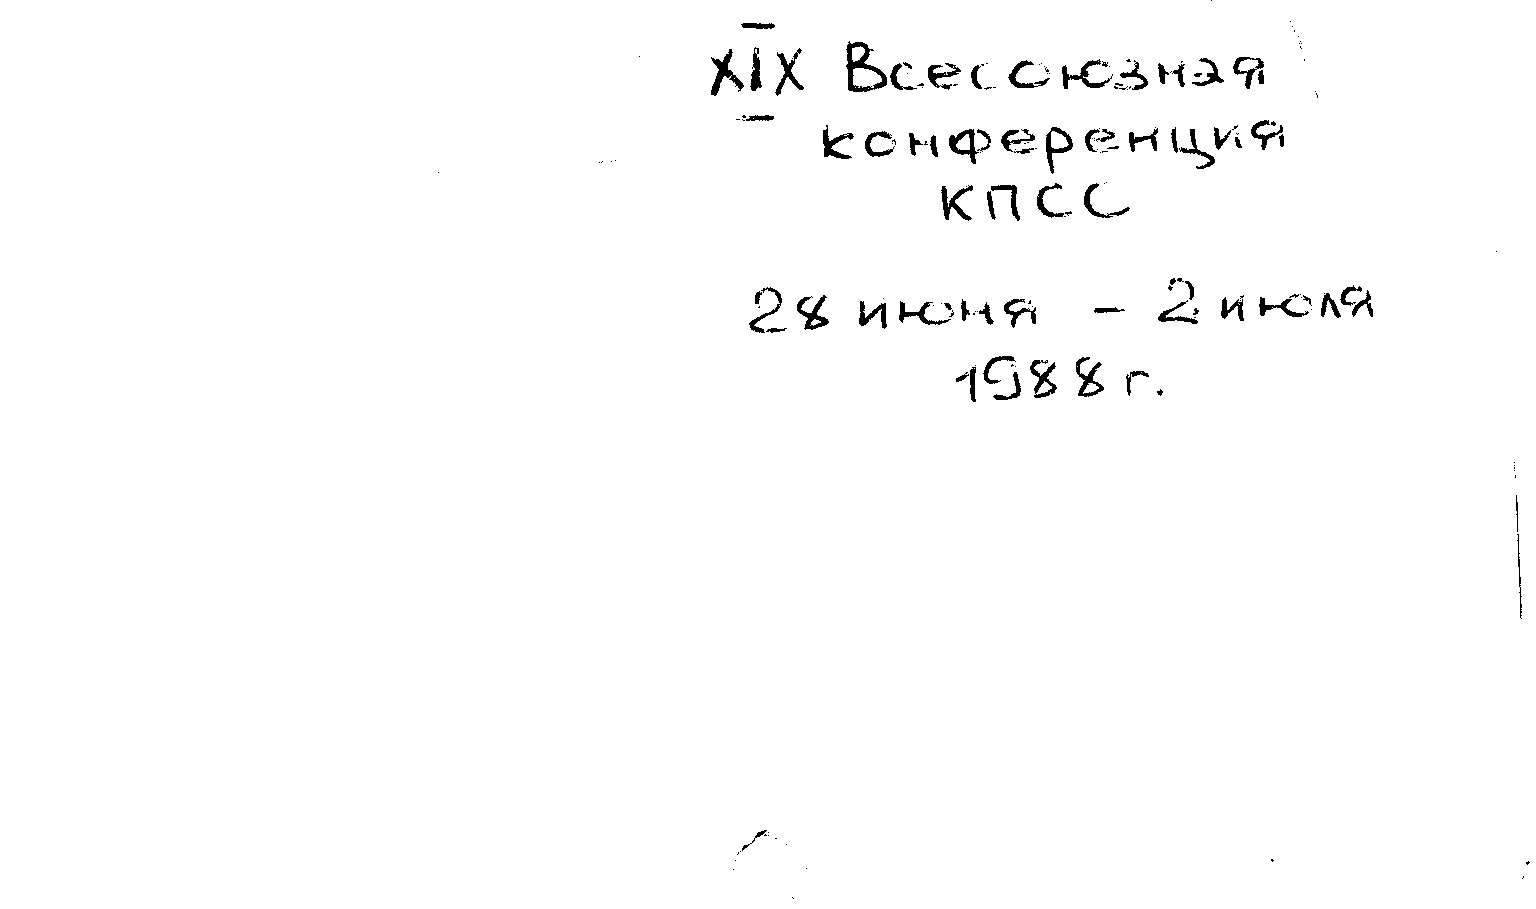 XIX Всесоюзная
конференция
КПСС
28 июня - 2 июля
1988 г.